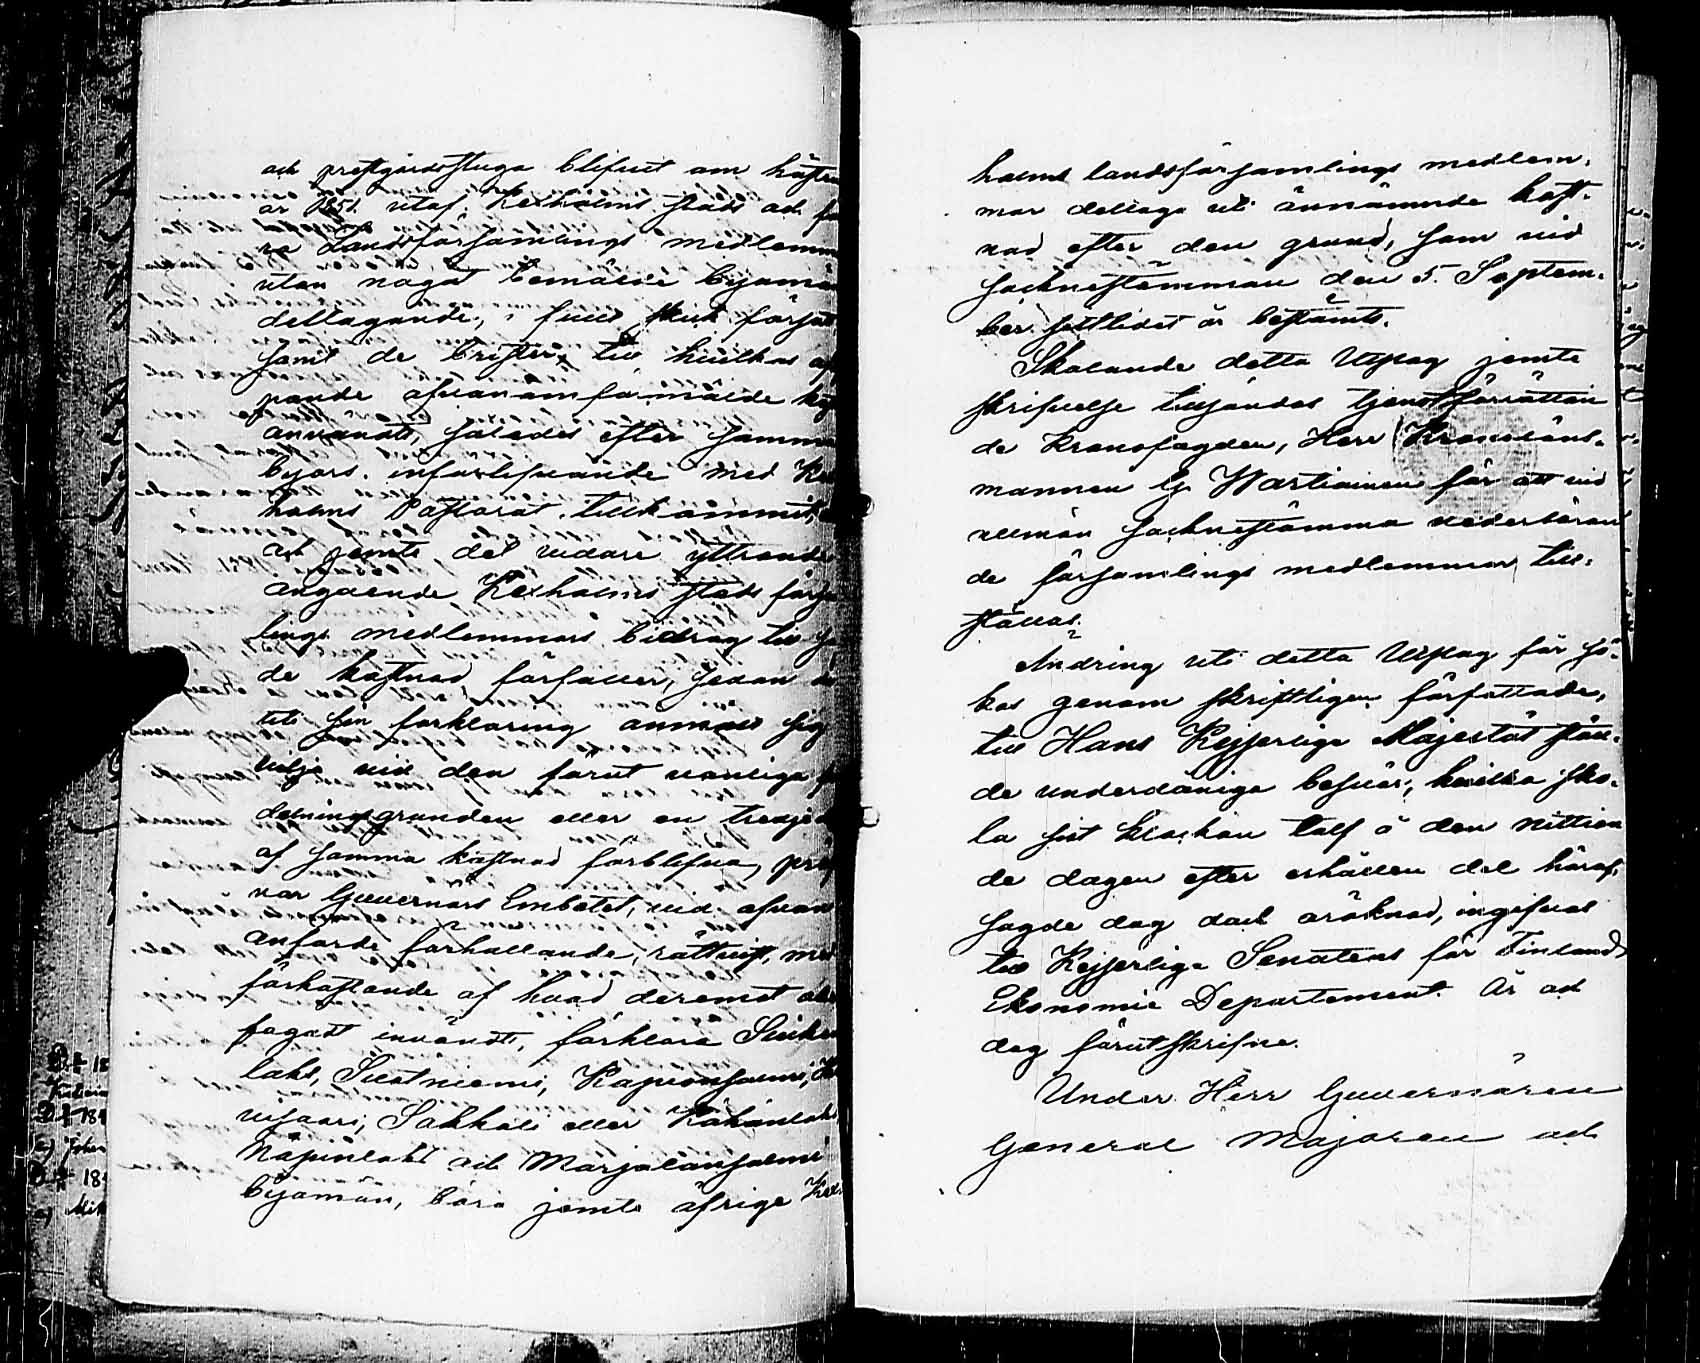 och prestgårdsstuga blifvit om hösten
år 1851 utaf Kexholms stads och
Landsförsamlings medlemmar
utan något bemälde byamäns
deltagande, i fullt skick försatt
samt de brister, till hvilkas
pande ofvanomförmälde
användts, således efter samma
byars införlifvande med Kex
holms Pastorat tillkommit,
och jemte det vidare yttrande
angående Kexholms stads försam
lings medlemmars bidrag till
de kostnad förfaller, sedan
uti sin förklaring anmält sig
vilja vid den förut vanliga
delnings grunden eller en tredjedel
af samma kostnad förblifva, pröf
var Guvernörs Embetet, vid ofvan
anförde förhållande, rättvist, med
förkastande af hvad deremot
fogadt invändt, förklara
laks, Suotniemi, Kapionsalmi,
visaari, Sakkali eller Kähänlaks
Näpinlaks och Marjalansalmi
byamän, böra jemte öfrige Kex-
holms landsförsamlings medlem-
mar deltaga uti omnämnde kost-
nad efter den grund, som vid
sockne stämman den 5. Septem-
ber sistlidet år bestämts.
Skolande detta Utslag jemte
skrifvelse tillsändas tjenstförrättan
de Kronofogden, Herr Kronoläns-
mannen G. Wartiainen för att vid
allmän sockne stämma vederböran
de församlings medlemmar till-
ställas.
Ändring uti detta Utslag får sö-
kas genom skriftligen författade,
till Hans Kejserliga Majestät ställ-
de underdåniga besvär, hvilka sko-
la sist klockan tolf å den nittion
de dagen efter erhållen del häraf,
sagde dag dock oräknad, ingifvas
till Kejserliga Senatens för Finland
Ekonomie Departement. År och
dag förutskrifne.
Under Herr Guvernörens
General Majoren och